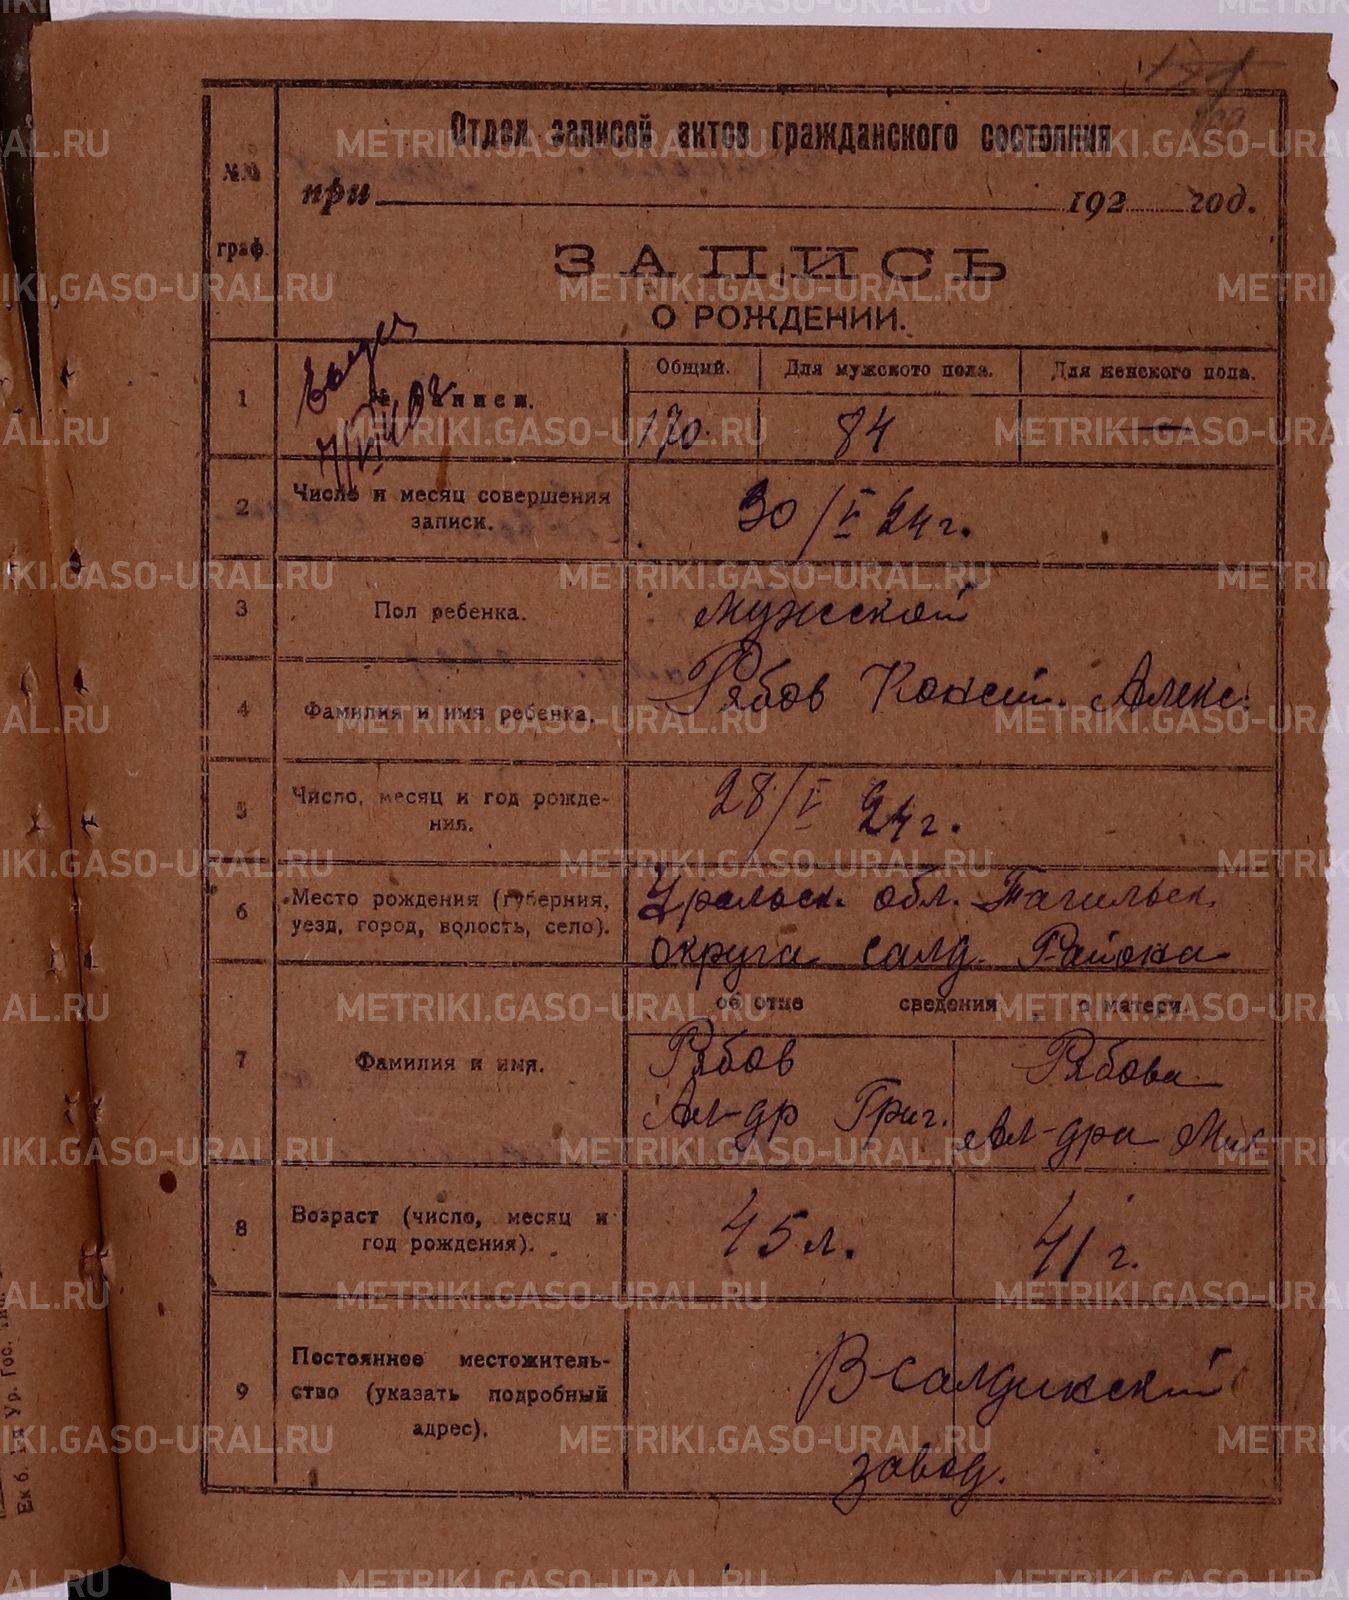 Отдел записей актов гражданского состояния
при 192 год.
№№ граф.
ЗАПИСЬ
О РОЖДЕНИИ.
1 записи. Общий. Для мужского пола. Для женского пола.
170 84 —
2 Число и месяц совершения записи. 30/V 24 г.
3 Пол ребенка. мужской
4 Фамилия и имя ребенка. Рябов Конст. Алекс.
5 Число, месяц и год рождения. 28/V 24 г.
6 Место рождения (губерния, уезд, город, волость, село). Уральск. обл. Тагильск.
округа салд. Района
об отце сведения о матери.
7 Фамилия и имя. Рябов Рябова
Ал-др Григ. Ал-дра Мих
8 Возраст (число, месяц и год рождения). 45 л. 41 г.
9 Постоянное местожительство (указать подробный адрес). В-салдинский
завод.
Ек б. Ур. Гос.
METRIKI.GASO-URAL.RU